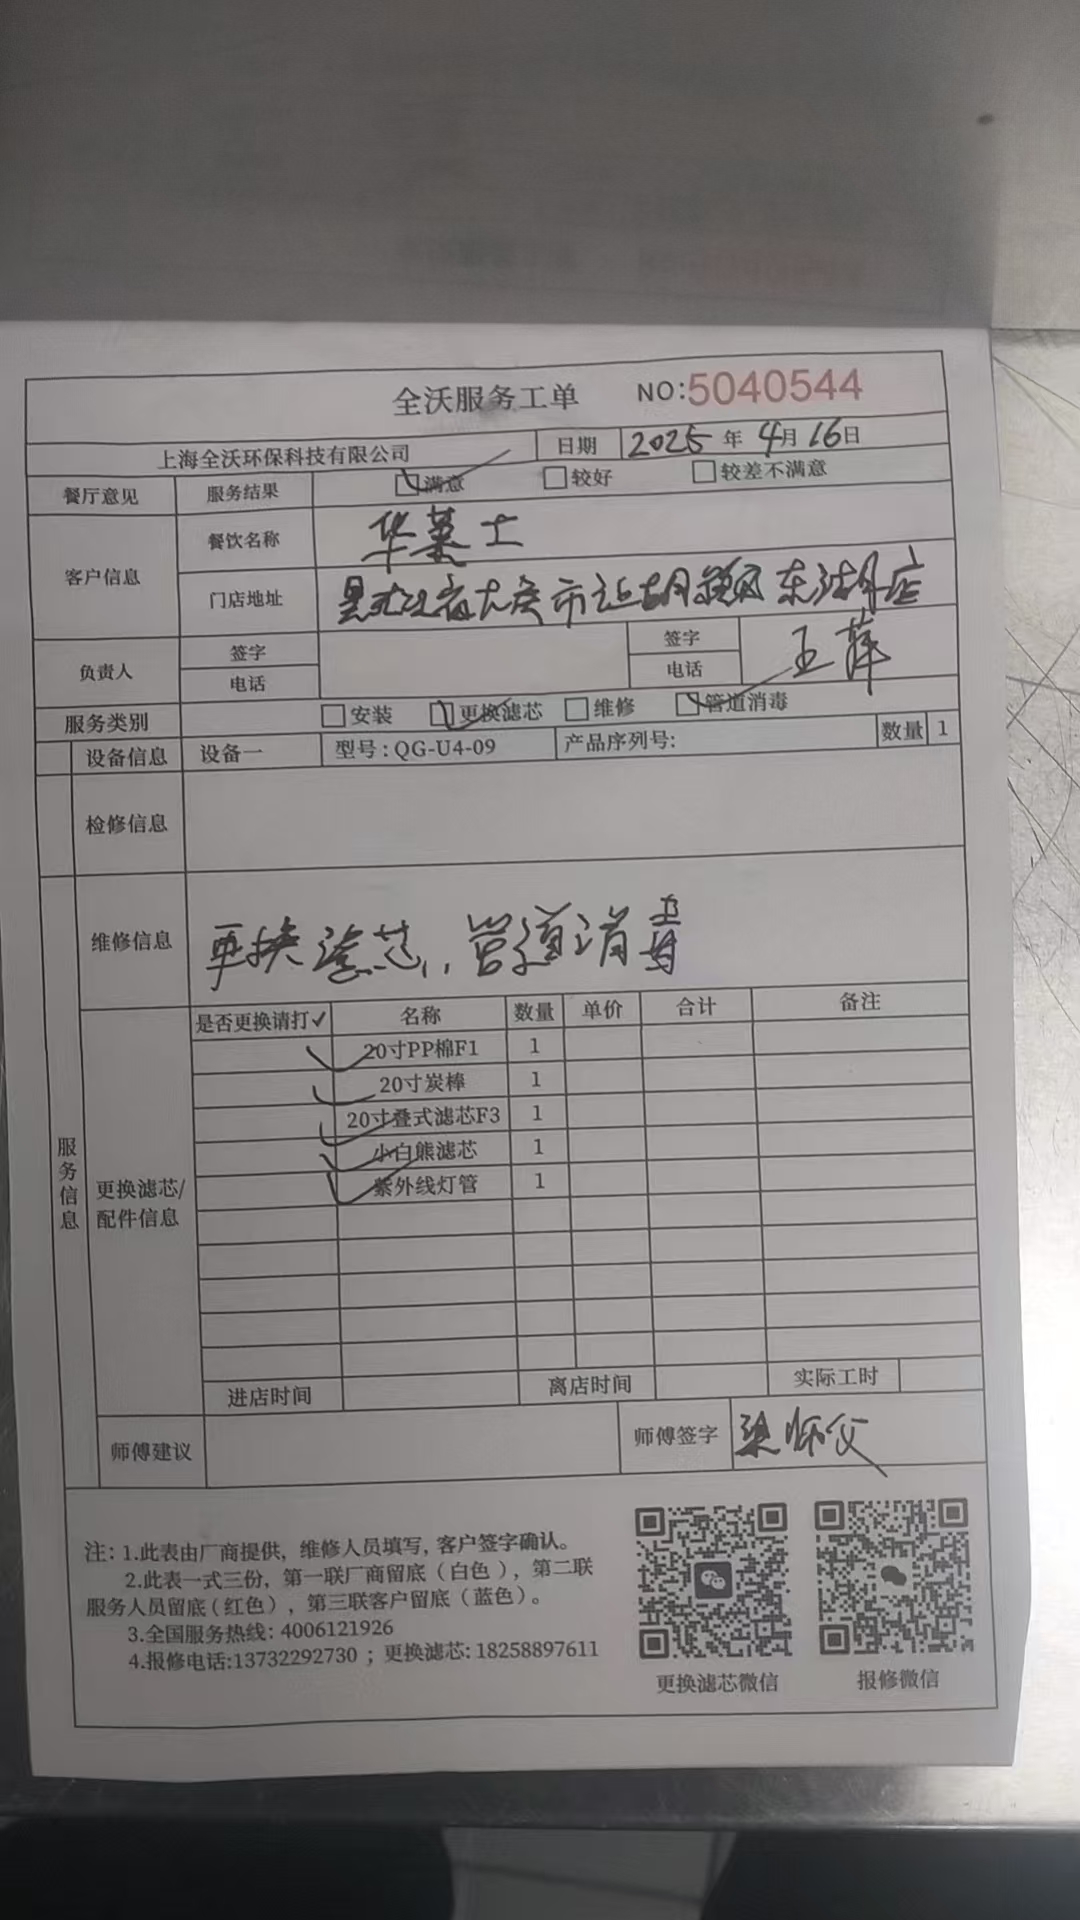 全沃服务工单 NO:5040544
上海全沃环保科技有限公司 日期 2025年4月16日
餐厅意见 服务结果 满意 较好 较差不满意
客户信息 餐饮名称 华莱士
门店地址 黑龙江省大庆市 东湖店
负责人 签字 签字 王萍
电话 电话
服务类别 安装 更换滤芯 维修 管道消毒
设备信息 设备一 型号:QG-U4-09 产品序列号: 数量 1
检修信息
维修信息 更换滤芯,管道消毒
服务信息
更换滤芯/配件信息
是否更换请打✓ 名称 数量 单价 合计 备注
✓ 20寸PP棉F1 1
✓ 20寸炭棒 1
✓ 20寸叠式滤芯F3 1
✓ 小白熊滤芯 1
✓ 紫外线灯管 1
进店时间 离店时间 实际工时
师傅建议 师傅签字 梁师父
注: 1.此表由厂商提供, 维修人员填写, 客户签字确认。
2.此表一式三份, 第一联厂商留底(白色), 第二联
服务人员留底(红色), 第三联客户留底(蓝色)。
3.全国服务热线: 4006121926
4.报修电话:13732292730 ; 更换滤芯: 18258897611
更换滤芯微信 报修微信